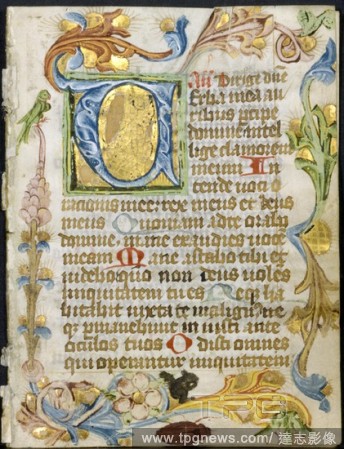 Dirige dn̄e
Verba mea au
ribus percipe
domine intel
lige clamorem
meum In
tende voci o
rationis mee rex meus et deus
meus Quoniam ad te orabo
domine mane exaudies voce
meam Mane astabo tibi et
videbo quo non deus voles
iniquitatem tu es Neq ha
bitabit iuxta te malign ne
q permanebunt iniusti ante
oculos tuos Odisti omnes
qui operantur iniquitatem
TPG
www.tpgnews.com/ 達志影像